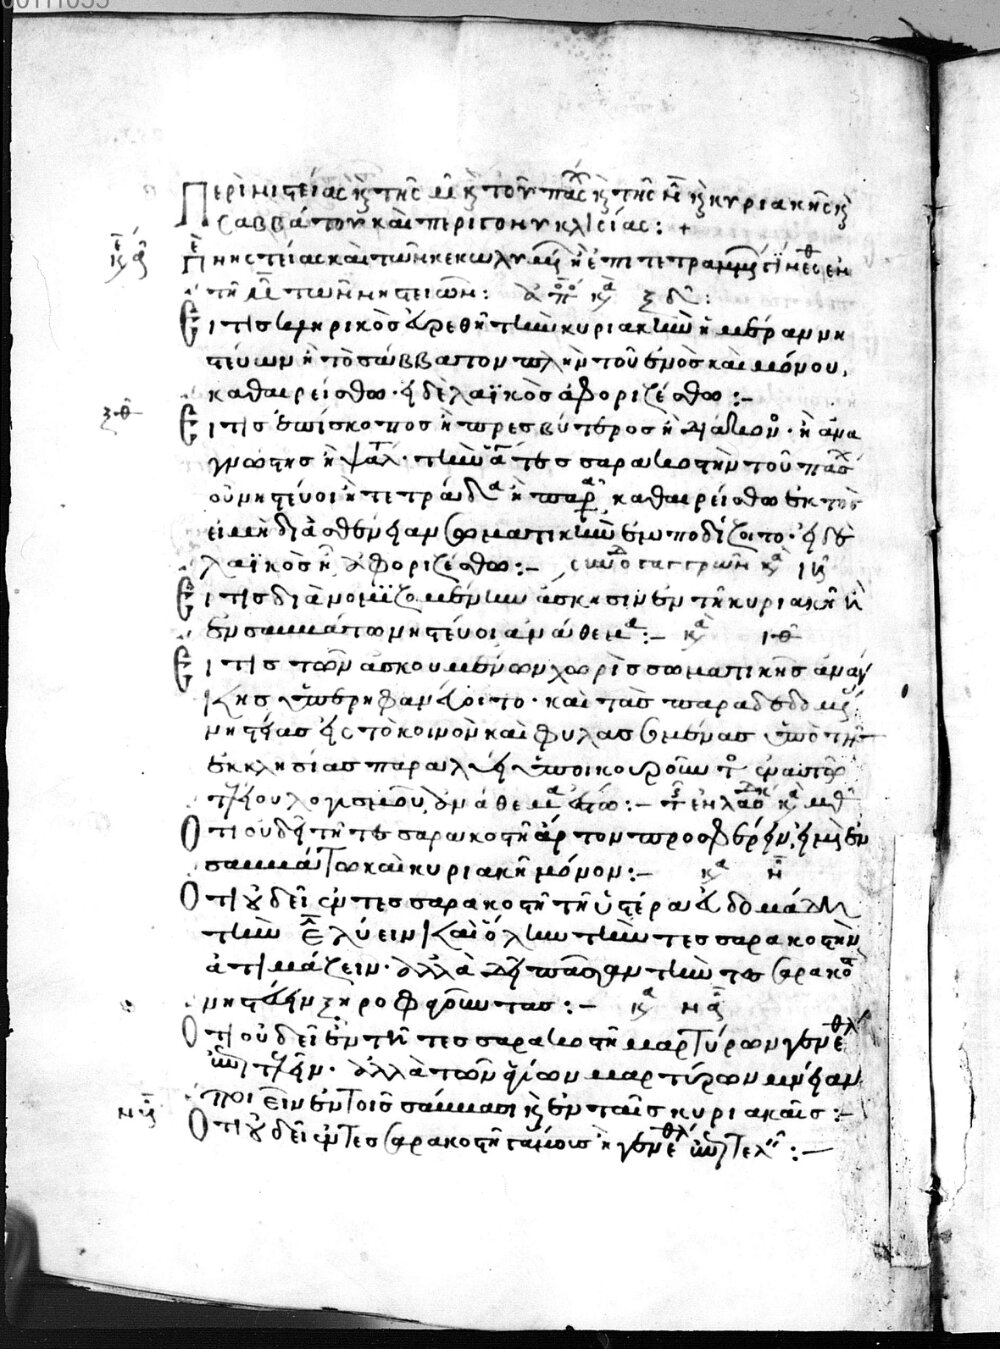 Περὶ νηστείας κ̀ τῆς μ̅ κ̀ τοῦ πάσχ κ̀ τῆς ν̅ κ̀ κυριακῆς κ̀
σαββάτου καὶ περὶ γονυκλισίας : +
νηστείας καὶ τῶν κεκωλυμ ἐπιτετραμμ ἐσθ ἐν
τῆ μ̅ τῶν νηστειῶν : ἀποσ κ ξδ :
Εἴ τις κληρικὸς εὑρεθῆ τὴν κυριακὴν ἡμέραν νη
στεύων ἢ τὸ σάββατον πλὴν τοῦ ἑνὸς καὶ μόνου,
καθαιρείσθω · εἰ δὲ λαϊκὸς ἀφοριζέσθω :-
ξθ
Εἴ τις ἐπίσκοπος ἢ πρεσβύτερος ἢ διάκον · ἢ ἀνα
γνώστης ἢ ψάλτ · τὴν ἁγ τεσσαρακοστὴν τοῦ πάσχ
οὐ νηστεύοι ἢ τετράδα ἢ παρ, καθαιρείσθω ἐκτὸς
εἰ μὴ δι᾽ ἀσθένειαν σωματικὴν ἐμποδίζοιτο · εἰ δὲ
λαϊκὸς ἢ ἀφοριζέσθω :- συνόδ τῆς γαγγρῶν κ ιη
Εἴ τις διὰ νομιζομένην ἄσκησιν ἐν τῆ κυριακῆ ἢ
ἐν σαββάτω νηστεύοι ἀνάθεμα :- κ ιθ
Εἴ τις τῶν ἀσκουμένων χωρὶς σωματικῆς ἀνάγ
κης ὑπερηφανεύοιτο · καὶ τὰς παραδεδομέ
νηστείας εἰς τὸ κοινὸν καὶ φυλασσομένας ὑπὸ τῆς
ἐκκλησίας παραλύει ὑποικουροῦν ἐν αὐτῶ
τελείου λογισμοῦ, ἀνάθεμα ἔστω :- τ ἐν λαοδικ κ μθ
Ὅτι οὐ δεῖ τῆ τεσσαρακοστῆ ἄρτον προσφέρειν, εἰ μὴ ἐν
σαββάτω καὶ κυριακῆ μόνον :- κ ν
Ὅτι οὐ δεῖ ἐν τεσσαρακοστῆ τῆ ὑστέρα ἑβδομάδι
τὴν ε̅ λύειν καὶ ὅλην τὴν τεσσαρακοστὴν
ἀτιμάζειν · ἀλλὰ δεῖ πᾶσαν τὴν τεσσρακο
νηστεύειν ξηροφαγοῦντας :- κ να
Ὅτι οὐ δεῖ ἐν τῆ τεσσαρακοστῆ μαρτύρων γενέθλ
ἐπιτελεῖν · ἀλλὰ τῶν ἁγίων μαρτύρων μνείαν
ποιεῖν ἐν τοῖς σάββασι κ̀ ἐν ταῖς κυριακαῖς :-
νβ
Ὅτι οὐ δεῖ ἐν τεσσαρακοστῆ γάμους ἢ γενέθλ ἐπιτελ :-